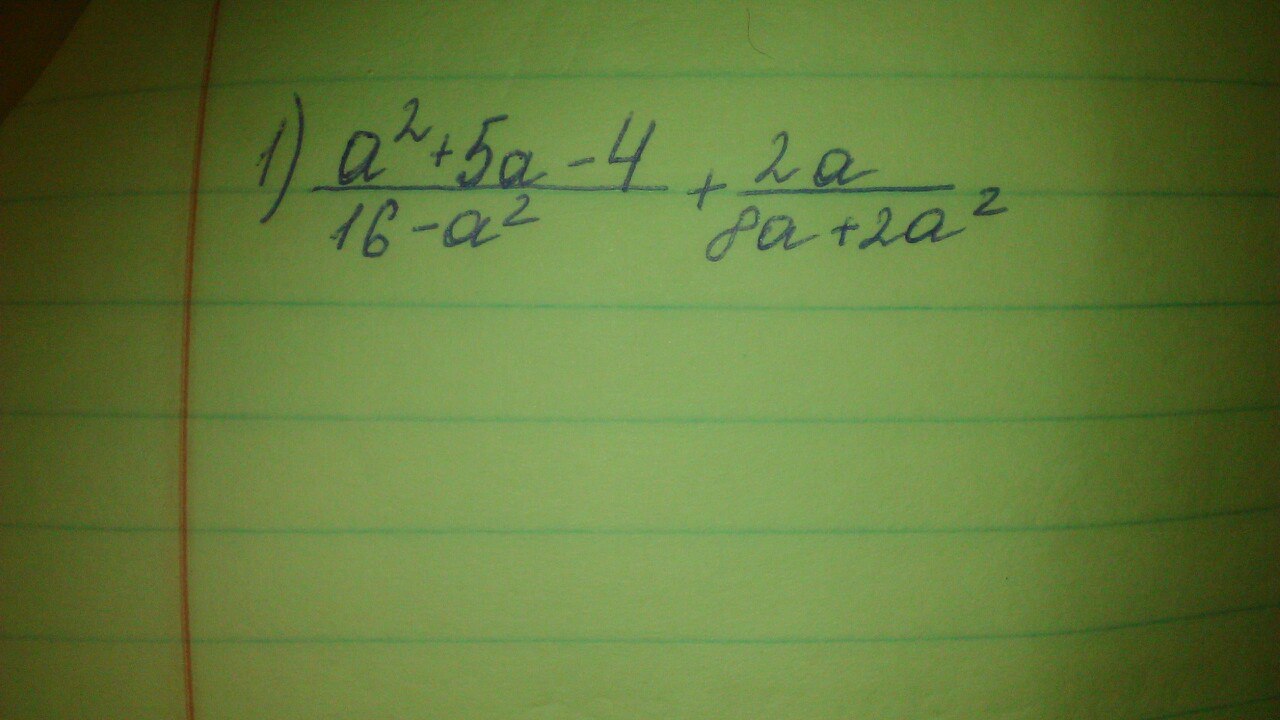 1) \frac{a^2+5a-4}{16-a^2} + \frac{2a}{8a+2a^2}